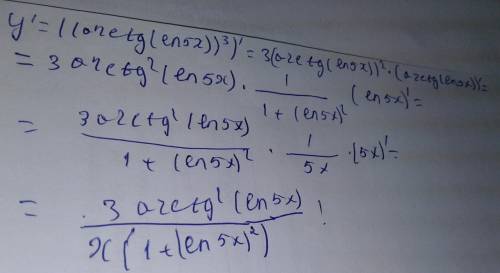 y' = ((arctg(ln5x))³)' = 3(arctg(ln5x))² · (arctg(ln5x))' =
= 3 arctg²(ln5x) · 1/(1+(ln5x)²) (ln5x)' =
= 3 arctg²(ln5x)/(1+(ln5x)²) · 1/5x · (5x)' =
= 3 arctg²(ln5x)/(x(1+(ln5x)²)) !